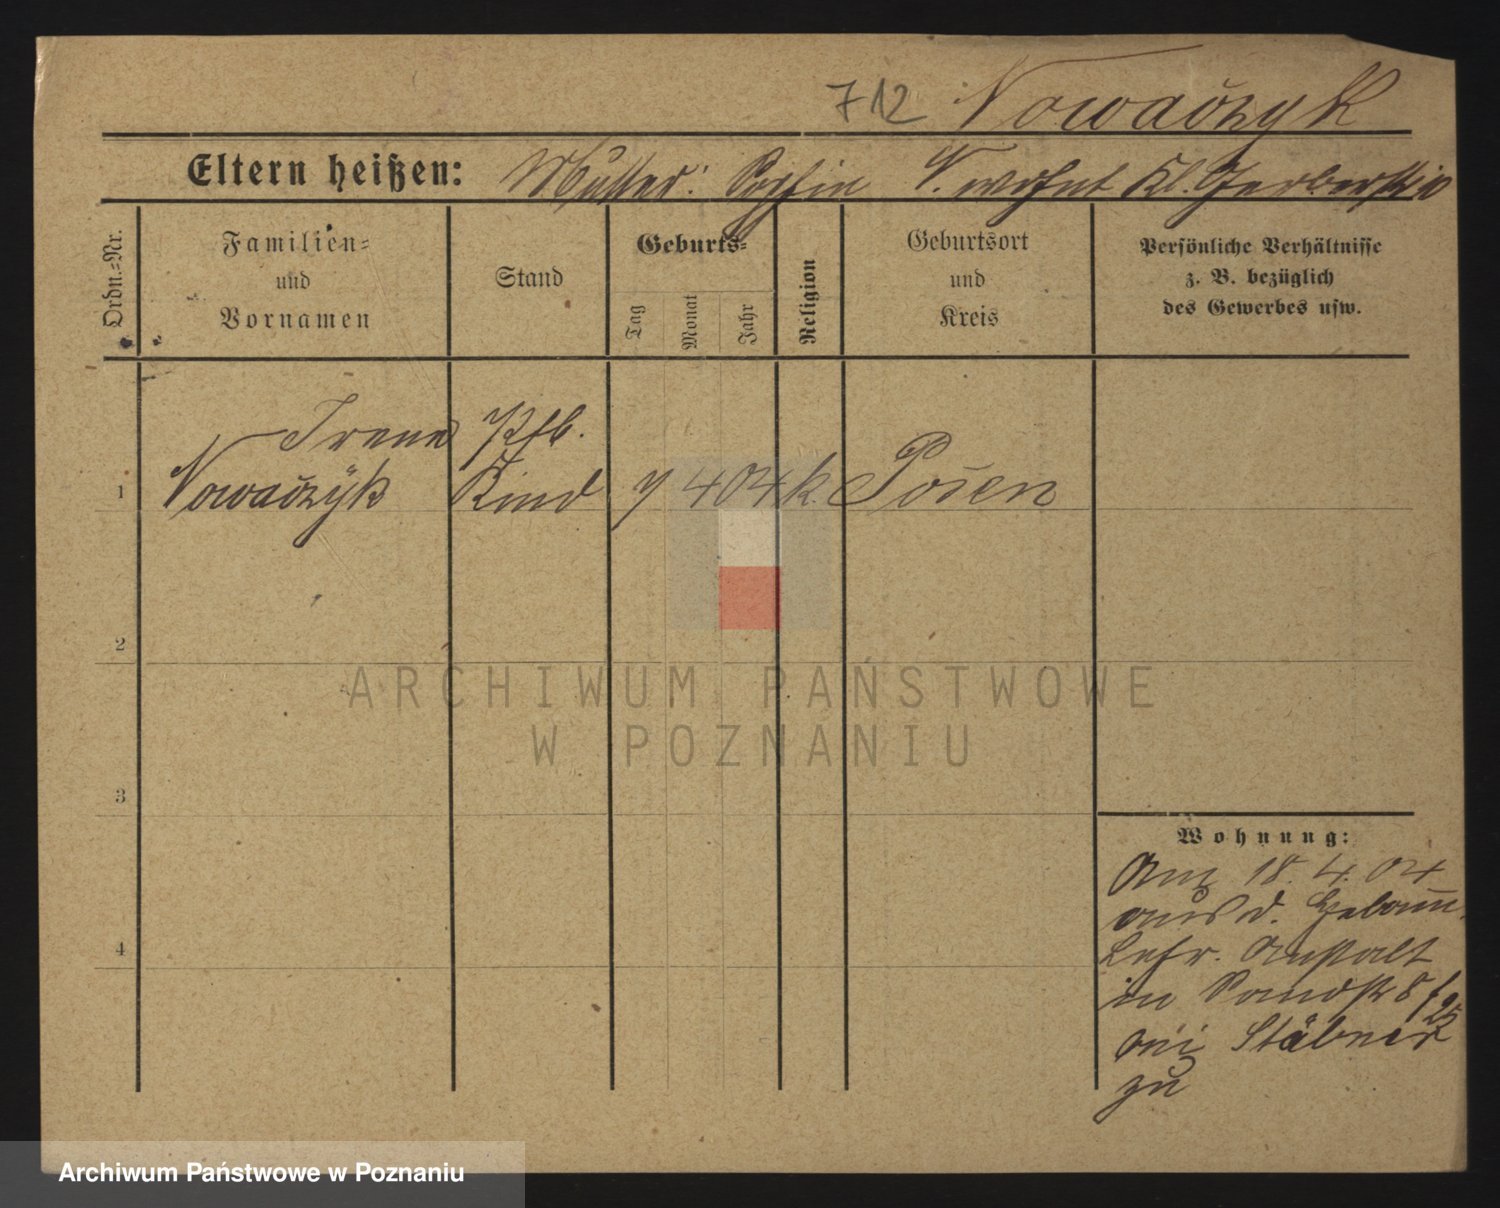 712 Nowaczyk
Eltern heißen: Mutter: Sophie N. wohnt Kl. Gerberstr.
Ordn.=Nr.
Familien=
und
Vornamen
Stand
Geburts=
Tag
Monat
Jahr
Religion
Geburtsort
und
Kreis
Persönliche Verhältnisse
z. B. bezüglich
des Gewerbes usw.
Irene Pfb.
1 Nowaczyk Kind 7 4 04 k. Posen
2
3
4
Wohnung:
Am 18.4.04
aus d. Hebamm.
Lehr. Anstalt
in Sandstr 8
bei Stäbner
zu
ARCHIWUM PAŃSTWOWE
W POZNANIU
Archiwum Państwowe w Poznaniu